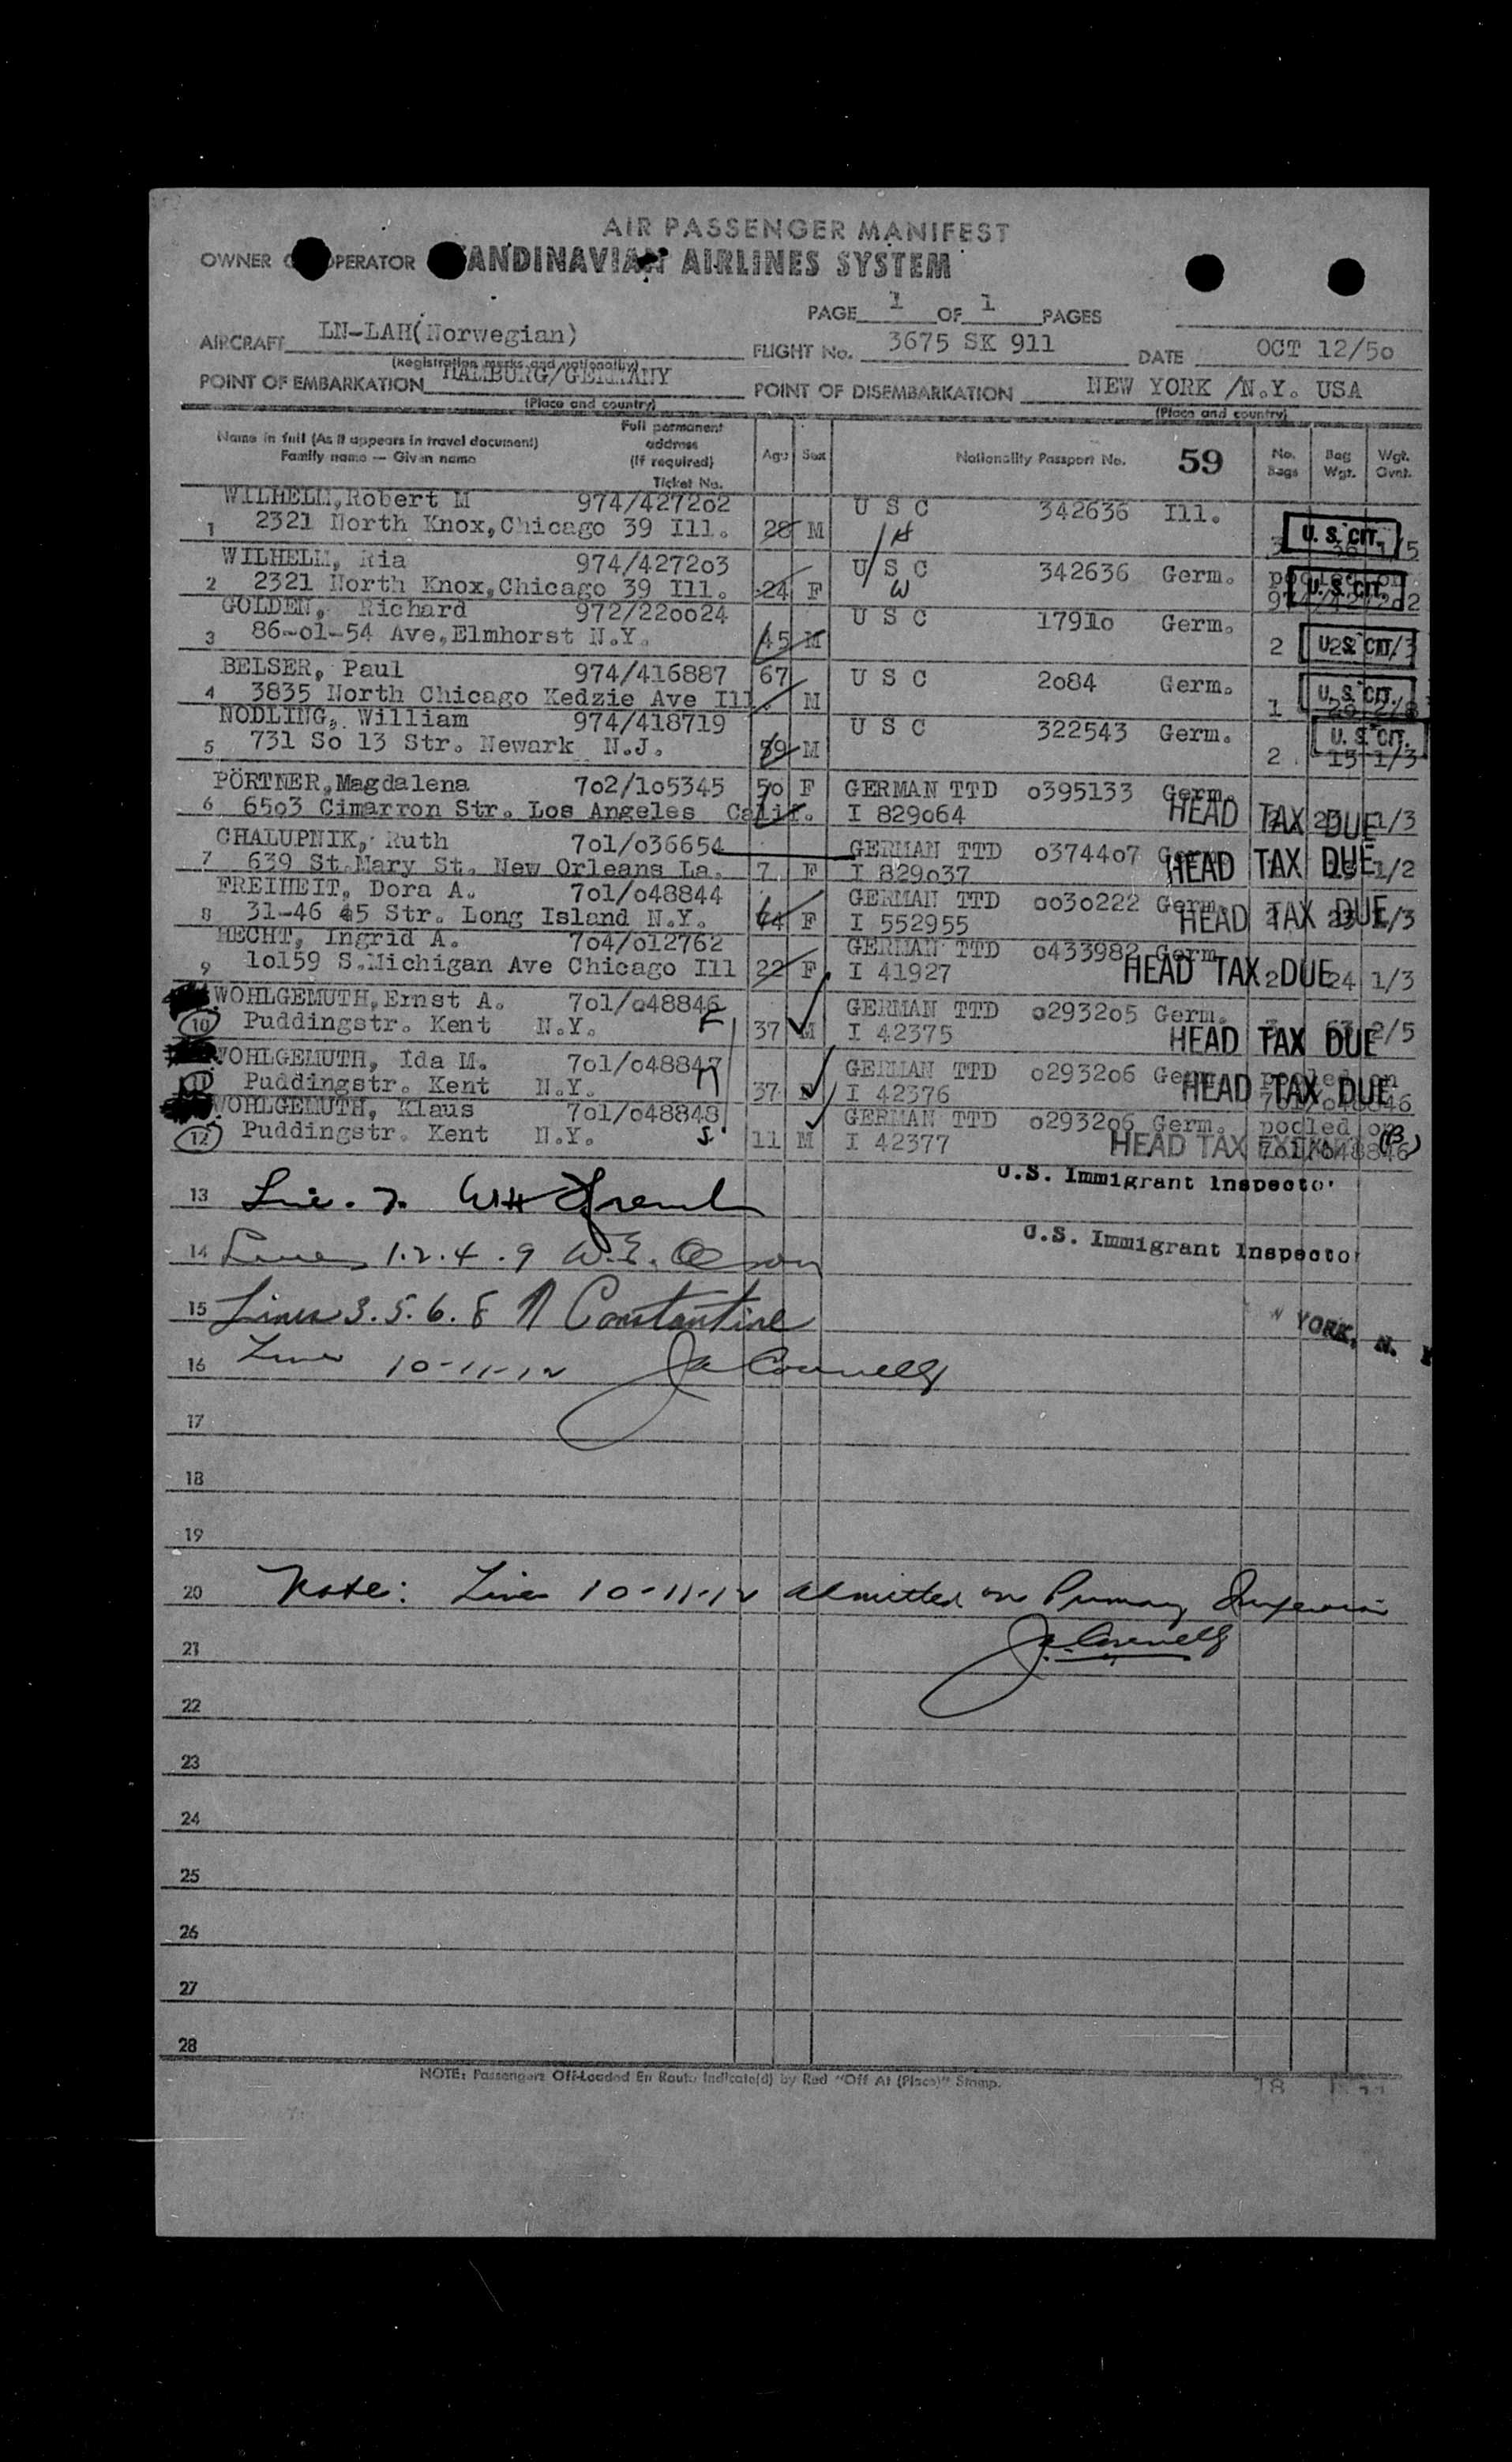 AIR PASSENGER MANIFEST
OWNER OPERATOR ANDINAVIAN AIRLINES SYSTEM
PAGE 1 OF 1 PAGES
AIRCRAFT LN-LAH(Norwegian) FLIGHT No. 3675 SK 911 DATE OCT 12/5o
(Registration marks and nationality)
POINT OF EMBARKATION HAMBURG/GERMANY POINT OF DISEMBARKATION NEW YORK /N.Y. USA
(Place and country) (Place and country)
Name in full (As it appears in travel document) Full permanent
Family name — Given name address
(If required)
Ticket No.
Age Sex Nationality Passport No. 59 No. Bags Bag Wgt. Wgt.
WILHELM,Robert M 974/4272o2 U S C 342636 Ill.
1 2321 North Knox,Chicago 39 Ill. 28 M H 3 U. S. CIT. 1/5
WILHELM, Ria 974/4272o3 U S C 342636 Germ. pooled on
2 2321 North Knox,Chicago 39 Ill. 24 F W U. S. CIT. 974/4272o2
GOLDEN, Richard 972/22oo24 U S C 1791o Germ.
3 86-o1-54 Ave,Elmhorst N.Y. 45 M 2 U. S. CIT. 1/3
BELSER, Paul 974/416887 67 U S C 2o84 Germ.
4 3835 North Chicago Kedzie Ave Ill. M 1 U. S. CIT.
NODLING, William 974/418719 U S C 322543 Germ.
5 731 So 13 Str. Newark N.J. 59 M 2 U. S. CIT. 15 1/3
PÖRTNER,Magdalena 7o2/1o5345 5o F GERMAN TTD o395133 Germ.
6 65o3 Cimarron Str. Los Angeles Calif. I 829o64 HEAD TAX DUE 1/3
CHALUPNIK, Ruth 7o1/o36654 GERMAN TTD o3744o7
7 639 St.Mary St. New Orleans La. 7 F I 829o37 HEAD TAX DUE 1/2
FREIHEIT, Dora A. 7o1/o48844 GERMAN TTD oo3o222 Germ.
8 31-46 45 Str. Long Island N.Y. 44 F I 552955 HEAD TAX DUE 1/3
HECHT, Ingrid A. 7o4/o12762 GERMAN TTD o433982 Germ.
9 1o159 S.Michigan Ave Chicago Ill 22 F I 41927 HEAD TAX DUE 2 24 1/3
WOHLGEMUTH,Ernst A. 7o1/o48846 GERMAN TTD o2932o5 Germ.
10 Puddingstr. Kent N.Y. F 37 M I 42375 HEAD TAX DUE 2/5
WOHLGEMUTH, Ida M. 7o1/o48847 GERMAN TTD o2932o6 Germ. pooled on
11 Puddingstr. Kent N.Y. 37 I 42376 HEAD TAX DUE 7o1/o48846
WOHLGEMUTH, Klaus 7o1/o48848 GERMAN TTD o2932o6 Germ. pooled on
12 Puddingstr. Kent N.Y. S 11 M I 42377 HEAD TAX 7o1/o48846
U.S. Immigrant Inspector
13 Line 7
U.S. Immigrant Inspector
14 Lines 1.2.4.9 W.E. Olson
15 Lines 3.5.6.8 Constantine
YORK, N.
16 Lines 10-11-12 Ja Connelly
17
18
19
20 Note: Lines 10-11-12 admitted on Primary
21 Ja Connelly
22
23
24
25
26
27
28
NOTE: Passengers Off-Loaded En Route Indicate(d) by Red "Off At (Place)" Stamp. 18